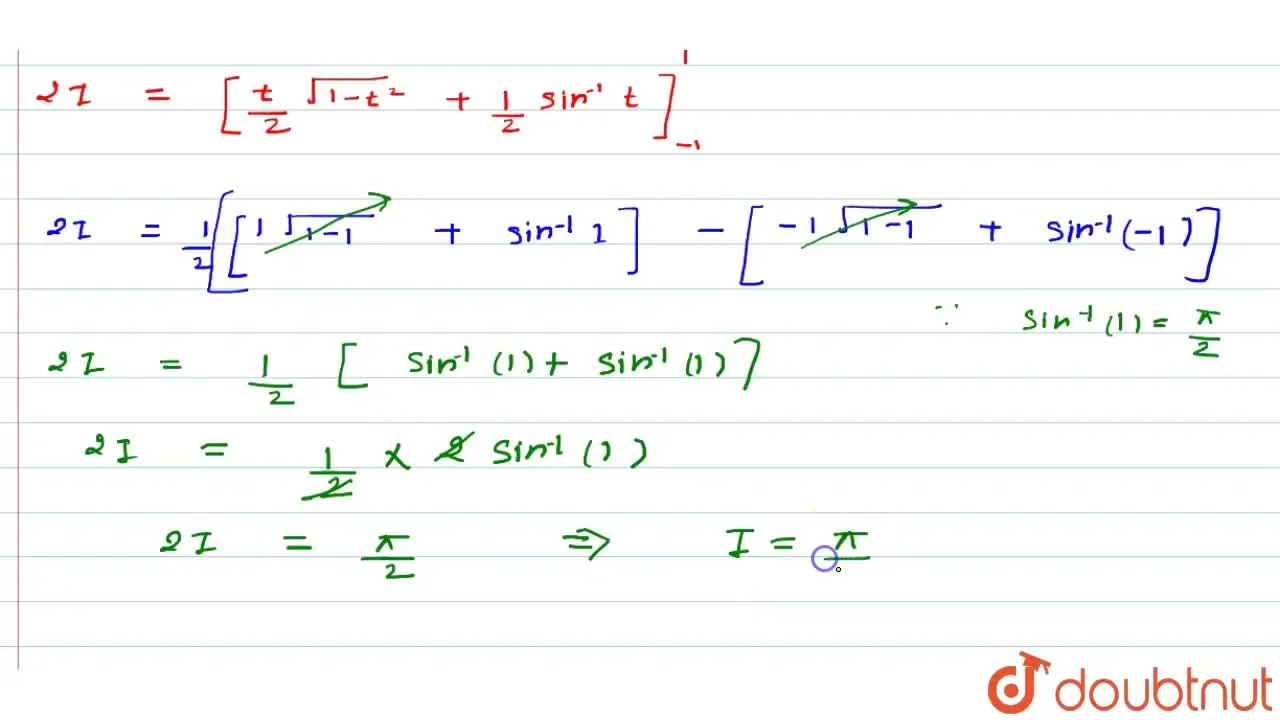 2I = [t/2 √1-t² + 1/2 sin⁻¹ t]₋₁¹
2I = 1/2 [[1 √1-1 + sin⁻¹ 1] - [-1 √1-1 + sin⁻¹(-1)]
∵ sin⁻¹(1) = π/2
2I = 1/2 [sin⁻¹(1) + sin⁻¹(1)]
2I = 1/2 × 2 sin⁻¹(1)
2I = π/2 ⇒ I = π
doubtnut